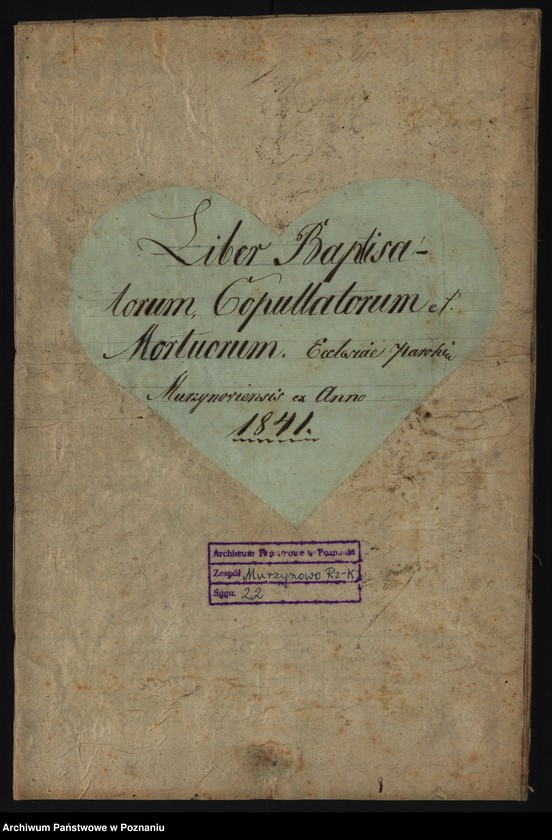 Liber Baptisa-
torum, Copullatorum et.
Mortuorum. Ecclesiae Parochia
Murzynoviensis ex Anno
1841.
Archiwum Państwowe w Poznaniu
Zespół Murzynowo Rz-K
Sygn. 22
Archiwum Państwowe w Poznaniu